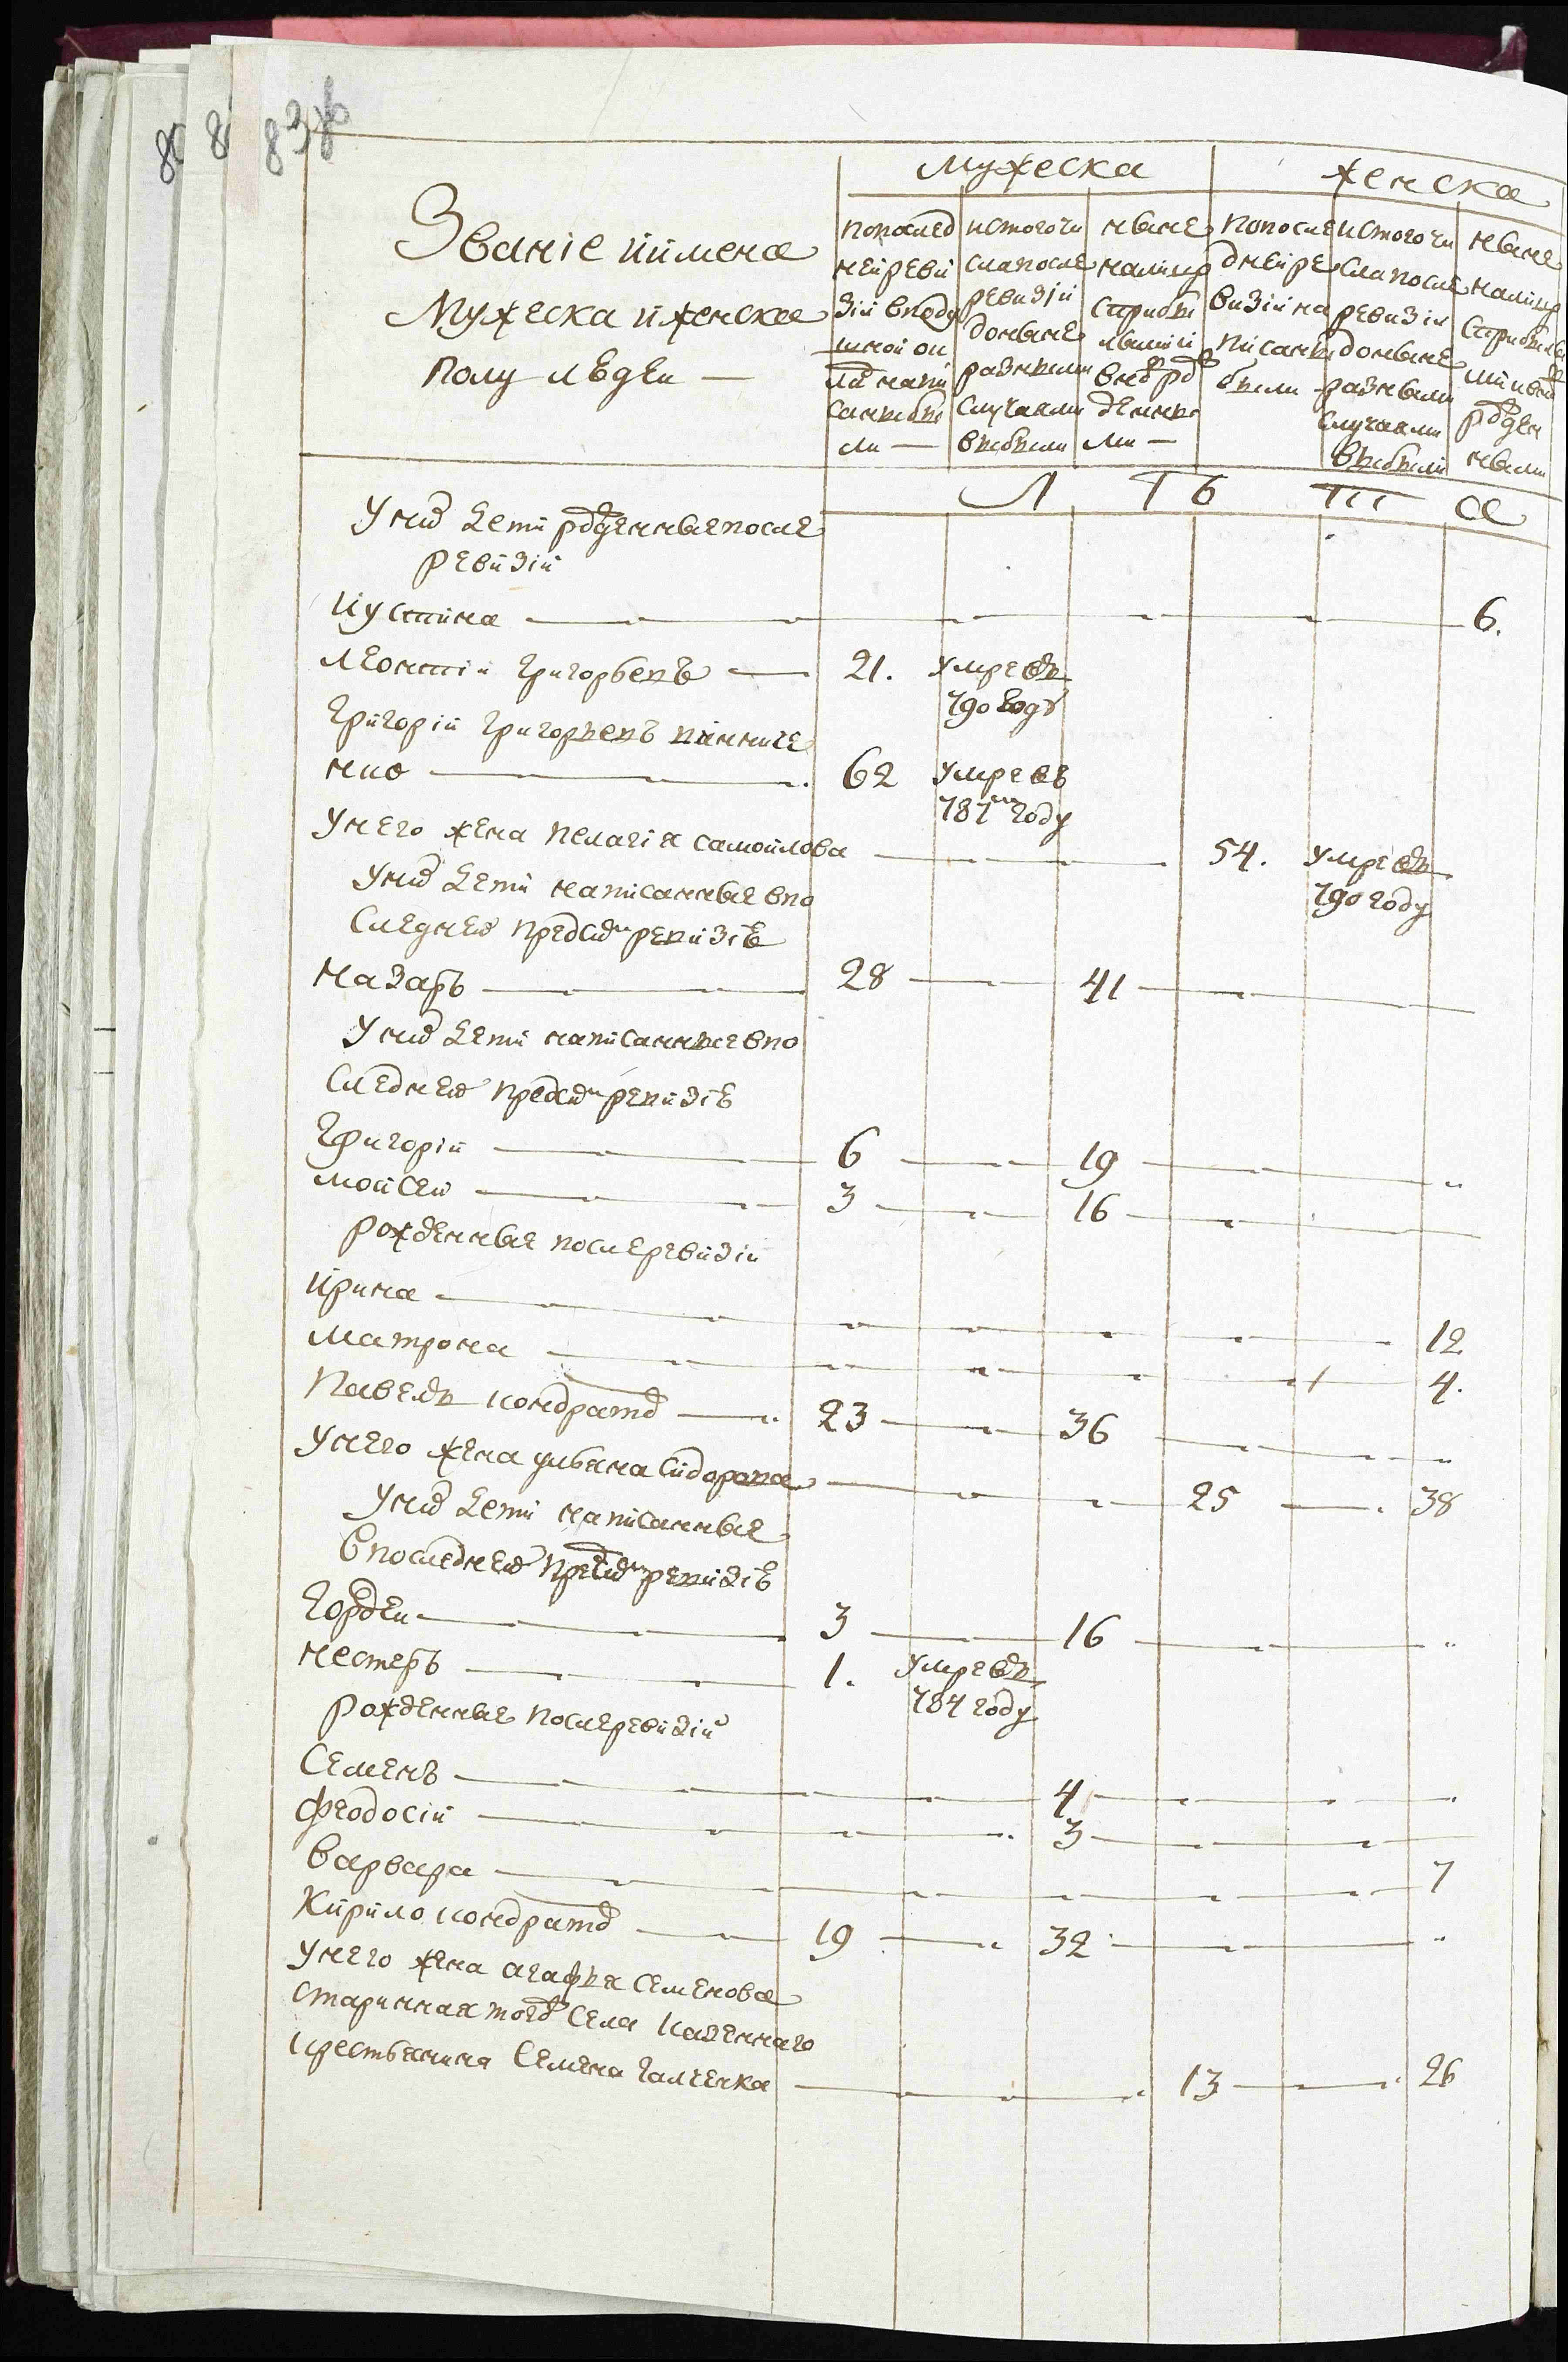 837об
Мужеска
женска
Званіе и имена
Мужеска и женска
полу людей —
попослед
ней реви
зіи вподу
шной ок
ладъ напи
саны бы
ли —
истого чи
сла после
ревизіи
до ныне
разными
случаями
выбыли
ныне
на лицо
старыя
и вновь рож
денны
ми —
попосле
дней ре
визіи на
писаны
были
истого чи
сла после
ревизіи
до ныне
разными
случаями
выбыли
ныне
на лицо
рожден
ными
Л Т Б ТТТ а
У нихъ дети рожденные после
ревизіи
Иустина 6.
Леонтій Григорьевъ 21. умре въ
790 году
Григорій Григорьевъ Винниче
нко 62 умре въ
787м году
У него жена Пелагія Самойлова 54. умре въ
790 году
У нихъ дети написанные впо
следней пред симъ ревизіѣ
Назаръ 28 41
У нихъ дети написанные впо
следней пред симъ ревизіѣ
Григорій 6 19
Мойсей 3 16
рожденные после ревизіи
Ирина 12
Матрона 4.
Павелъ Кондратов 23 36
У него жена Ульяна Сидорова 25 38
У нихъ дети написанные
Впоследней пред симъ ревизіѣ
Гордей 3 16
Нестеръ 1. умре въ
784 году
рожденные после ревизіи
Семенъ 4
Феодосій 3
Варвара 7
Кирило Кондратов 19 32
У него жена Агафья Семенова
старинная того села казенного
крестьянина Семена Галченка 13 26